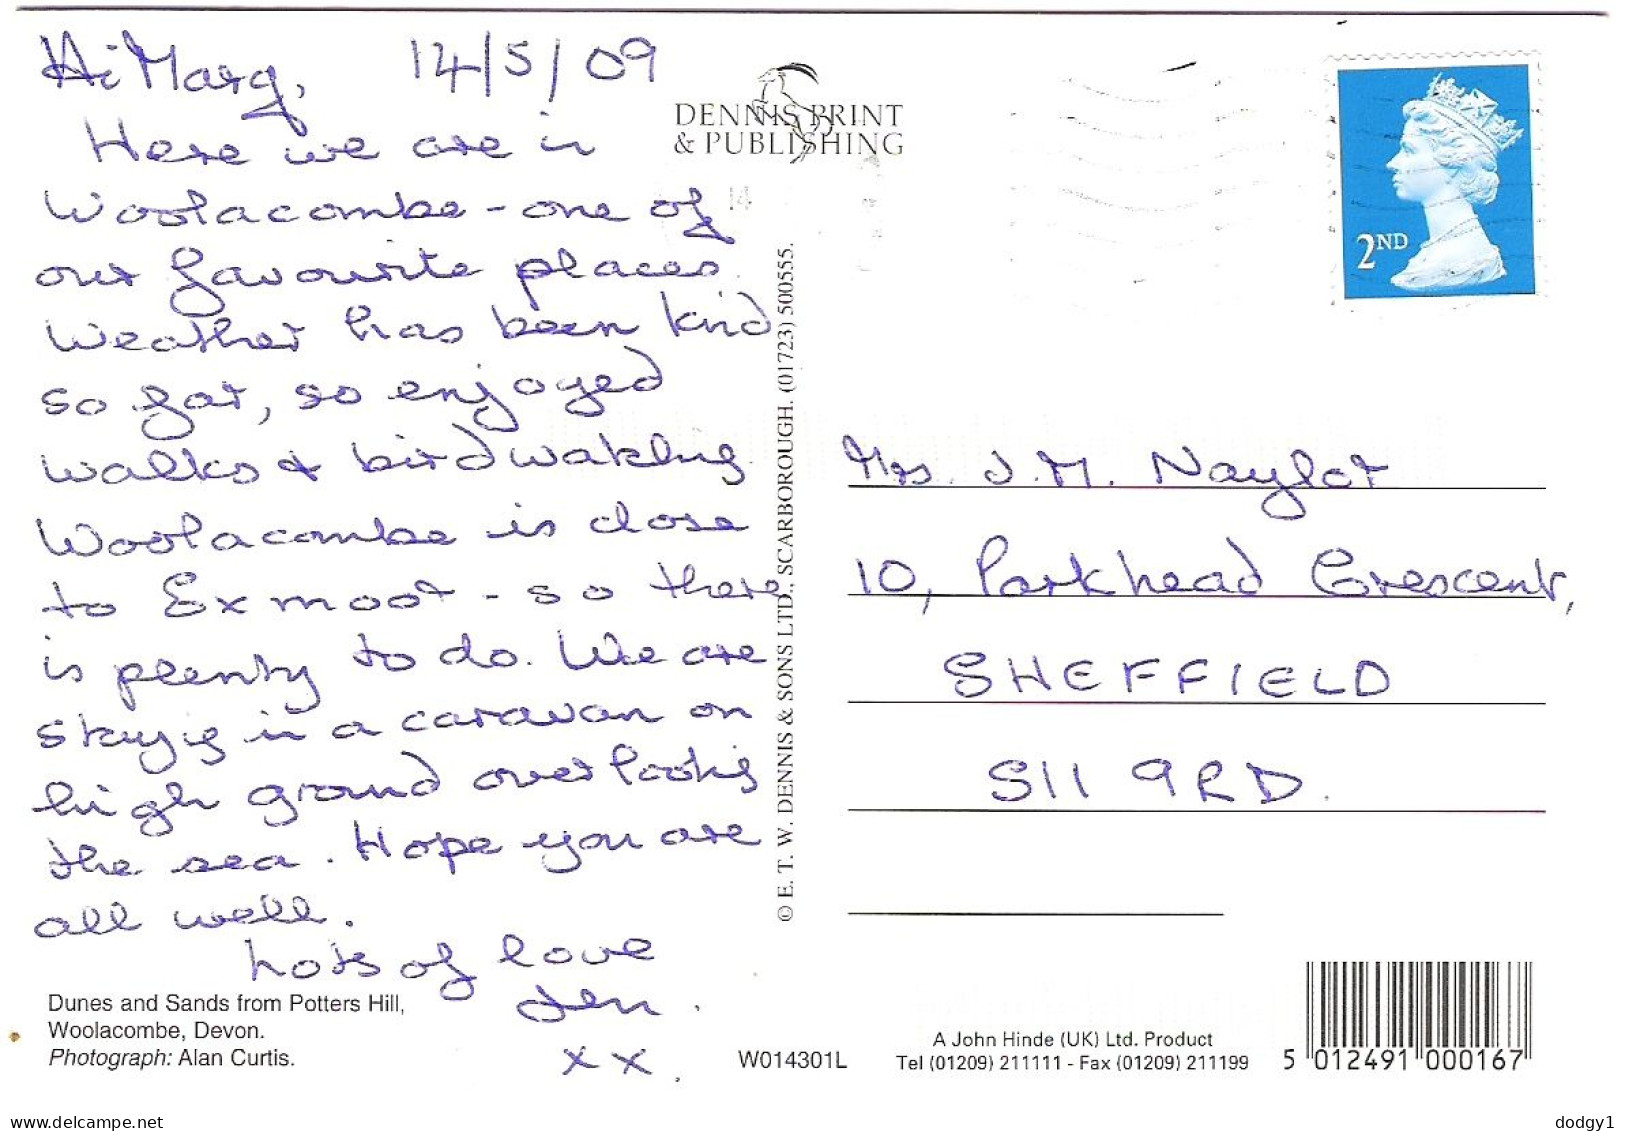 Hi Marg, 14/5/09
Here we are in
Woolacombe - one of
our favourite places.
Weather has been kind
so far, so enjoyed
walks & birdwatching.
Woolacombe is close
to Exmoor - so there
is plenty to do. We are
staying in a caravan on
high ground overlooking
the sea. Hope you are
all well.
Lots of love
Jen.
x x.
Dunes and Sands from Potters Hill,
Woolacombe, Devon.
Photograph: Alan Curtis.
DENNIS PRINT
& PUBLISHING
14
© E. T. W. DENNIS & SONS LTD., SCARBOROUGH. (01723) 500555.
2ND
Mrs. J. M. Naylor
10, Parkhead Crescent,
SHEFFIELD
S11 9RD.
W014301L
A John Hinde (UK) Ltd. Product
Tel (01209) 211111 - Fax (01209) 211199
5 012491 000167
www.delcampe.net
dodgy1